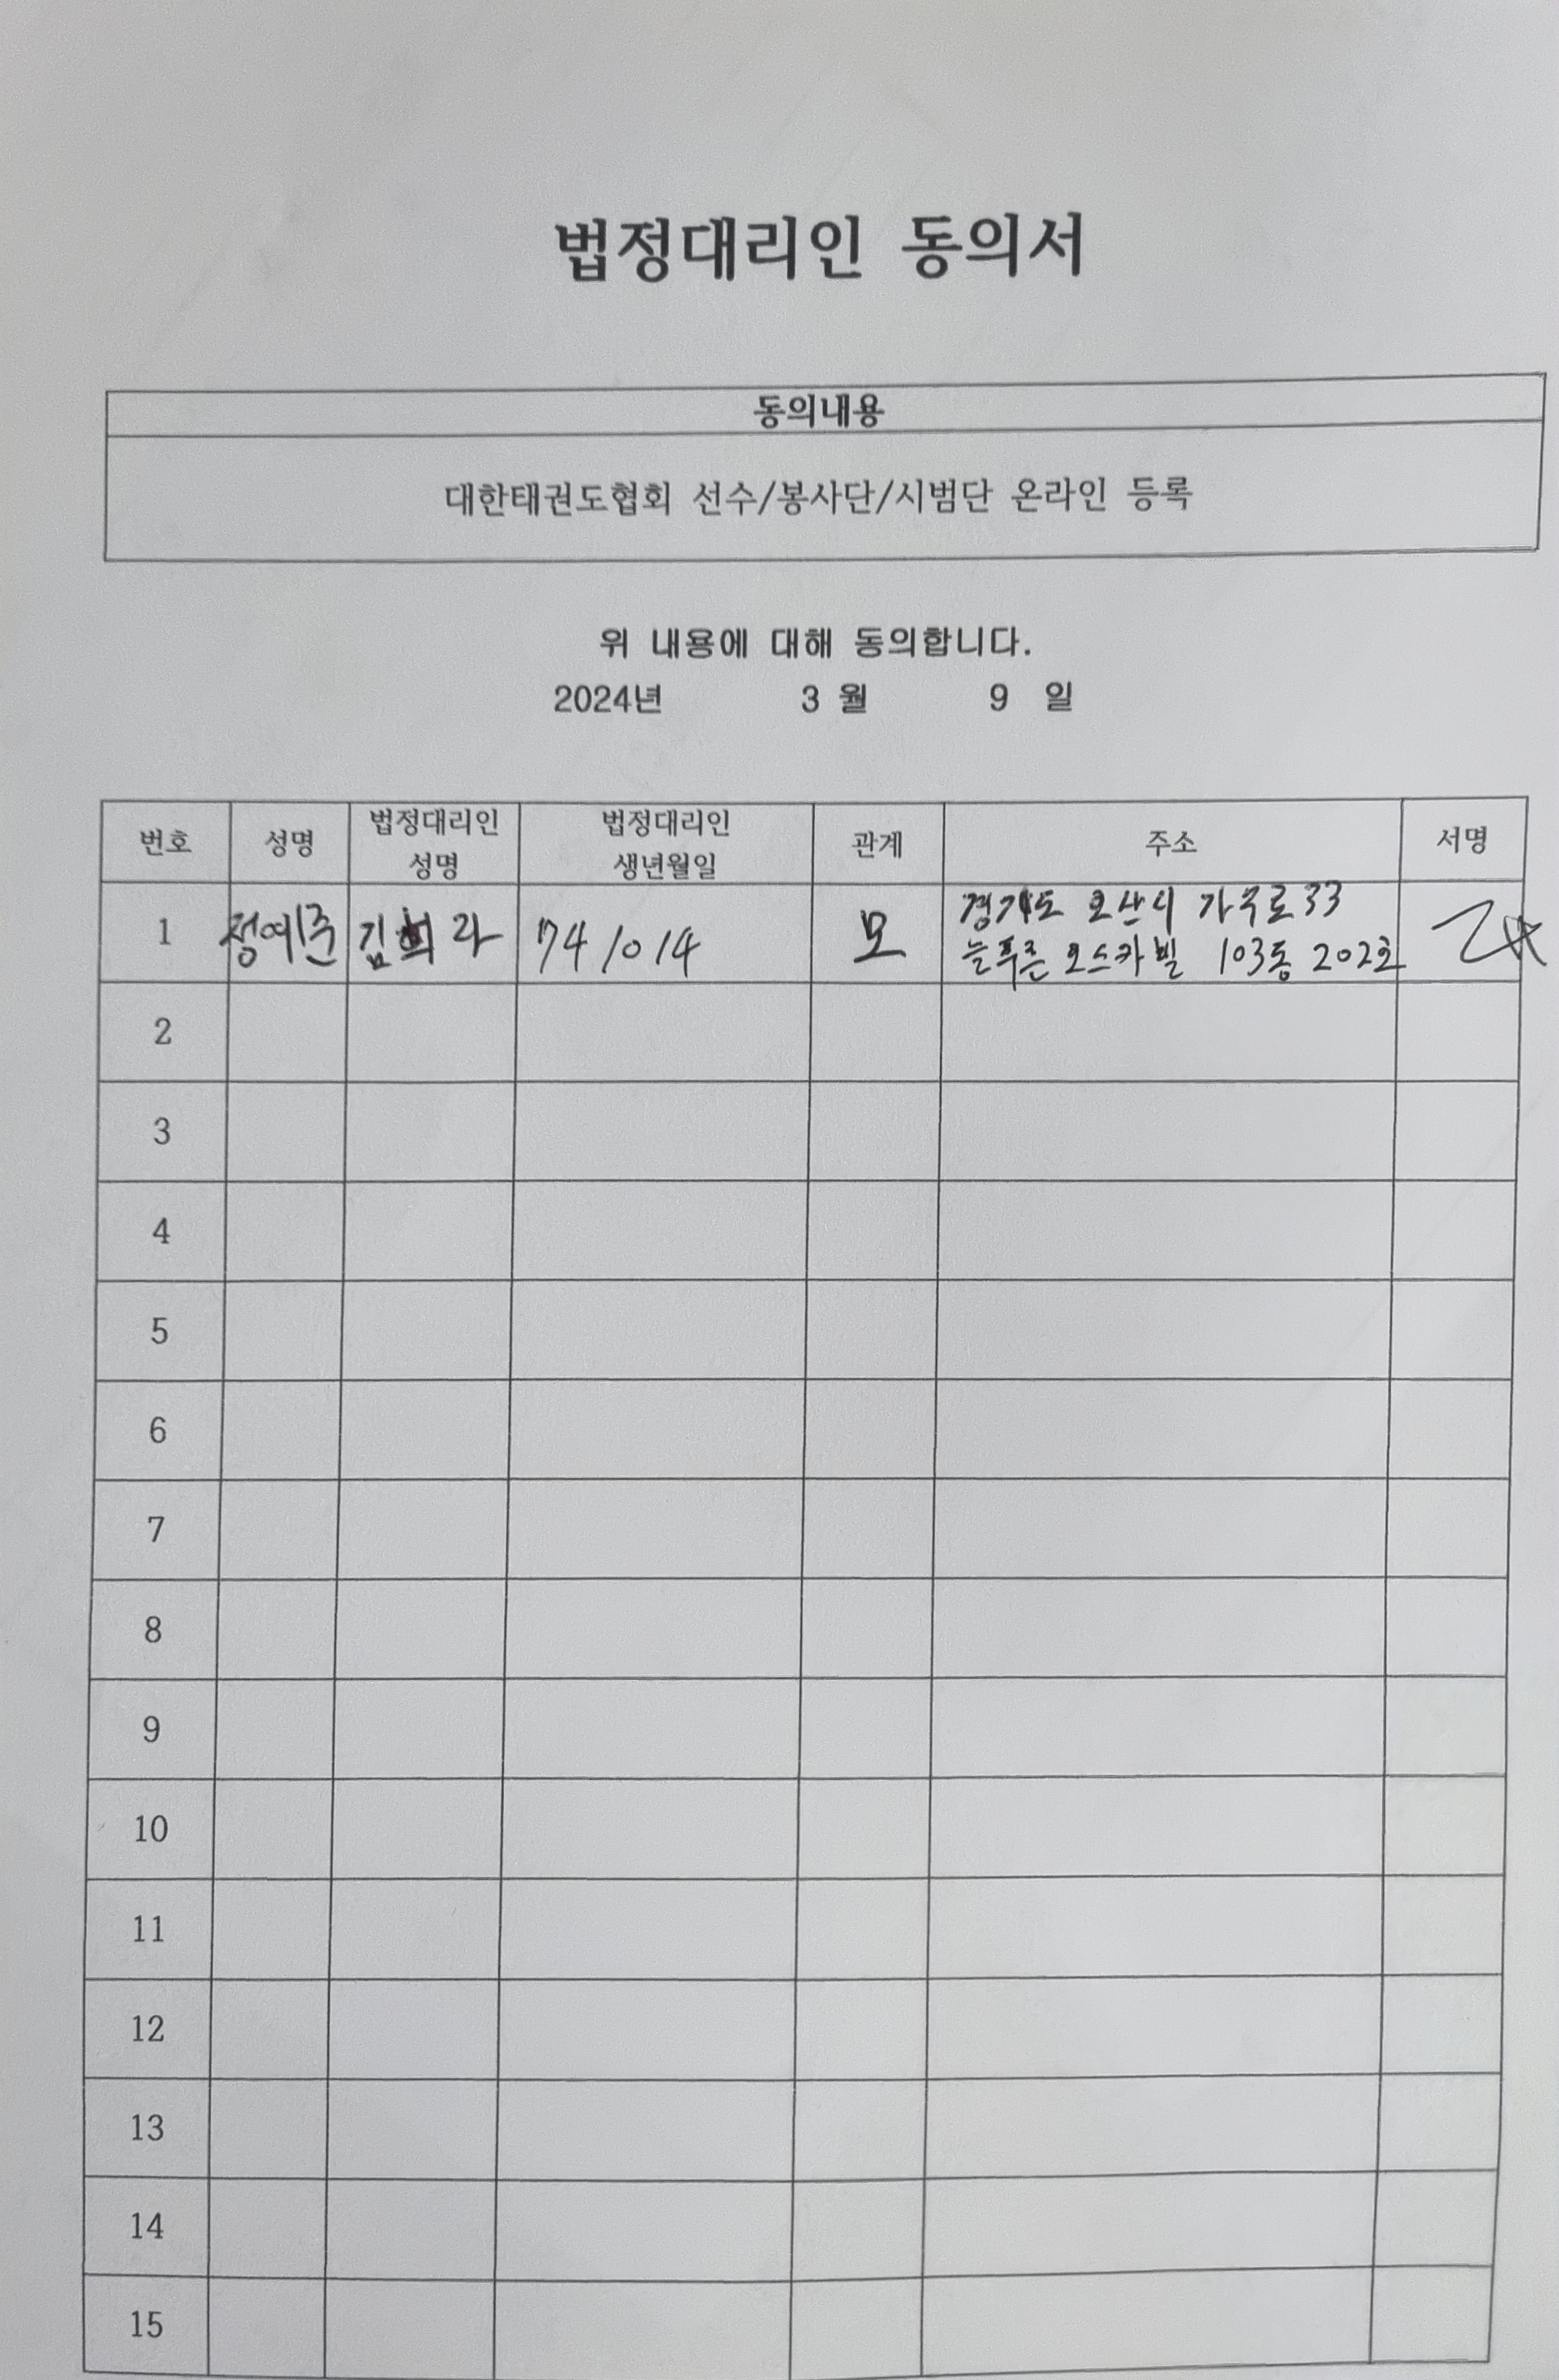 법정대리인 동의서
동의내용
대한태권도협회 선수/봉사단/시범단 온라인 등록
위 내용에 대해 동의합니다.
2024년 3 월 9 일
번호 성명 법정대리인 성명 법정대리인 생년월일 관계 주소 서명
1 정예준 김희라 741014 모 경기도 오산시 가수로33
늘푸른 오스카빌 103동 202호
2
3
4
5
6
7
8
9
10
11
12
13
14
15